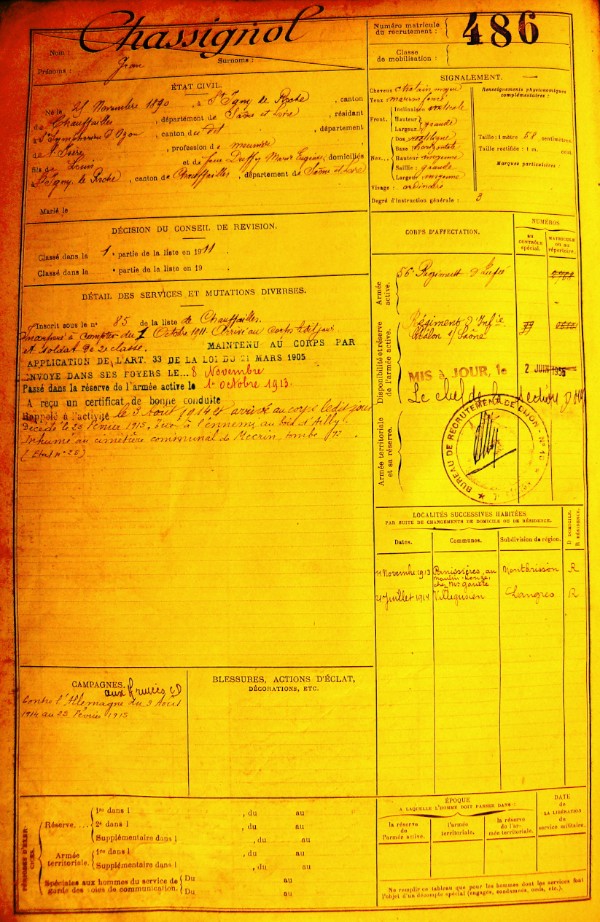 Chassignol
Nom :
Prénoms : Jean Surnoms :
Numéro matricule
du recrutement :
486
Classe
de mobilisation :
ÉTAT CIVIL.
Né le 21 Novembre 1890, à St Igny de Roche, canton
de Chauffailles, département de Saône et Loire, résidant
à St Symphorien d'Ozon, canton de dit, département
de l'Isère, profession de meunier
fils de Louis et de feue domiciliés
à St Igny de Roche, canton de Chauffailles, département de Saône et Loire
Marié le
SIGNALEMENT.
Cheveux châtain
Yeux marron foncé
Front.
Inclinaison verticale
Hauteur grande
Largeur
Nez.
Dos
Base horizontale
Hauteur moyenne
Saillie grande
Largeur moyenne
Visage :
Renseignements physionomiques
complémentaires :
Taille : 1 mètre centimètres
Taille rectifiée : 1 m. cent.
Marques particulières :
Degré d'instruction générale : 3
DÉCISION DU CONSEIL DE REVISION.
Classé dans la 1e partie de la liste en 1911
Classé dans la e partie de la liste en 19
DÉTAIL DES SERVICES ET MUTATIONS DIVERSES.
Inscrit sous le n° 85 de la liste de Chauffailles.
Incorporé à compter du 7 Octobre 1911. Arrivé au corps ledit jour
et soldat de 2e classe. MAINTENU AU CORPS PAR
APPLICATION DE L'ART. 33 DE LA LOI DU 21 MARS 1905
ENVOYE DANS SES FOYERS LE 8 Novembre
Passé dans la réserve de l'armée active le 1er octobre 1913.
A reçu un certificat de bonne conduite
Rappelé à l'activité le 3 Août 1914 et arrivé au corps ledit jour
Décédé le 20 Février 1915, tué à l'ennemi au bois d'Ailly.
Inhumé au cimetière communal de Mecrin, tombe
CORPS D'AFFECTATION.
NUMÉROS
AU
contrôle
spécial.
MATRICULE
ou au
répertoire.
Armée
active.
56e Régiment d'Infie
Disponibilité et réserve
de l'armée active.
Régiment d'Infie
Châlon s/ Saône
MIS à JOUR, le 2 JUIN
Armée territoriale
et sa réserve.
BUREAU DE RECRUTEMENT DE LYON
LOCALITÉS SUCCESSIVES HABITÉES
PAR SUITE DE CHANGEMENTS DE DOMICILE OU DE RÉSIDENCE.
Dates. Communes. Subdivision de région. D DOMICILE. R RÉSIDENCE.
Novembre 1913 Montbrison R
21 Juillet 1914 Villegusien Langres R
CAMPAGNES.
aux Armées
Contre l'Allemagne du 3 Août
1914 au 23 Février 1915
BLESSURES, ACTIONS D'ÉCLAT,
DÉCORATIONS, ETC.
PÉRIODES D'EXER-
CICES.
Réserve....
1re dans l , du au
2e dans l , du au
Supplémentaire dans l , du au
Armée
territoriale.
1re dans l , du au
Supplémentaire dans l , du au
Spéciales aux hommes du service de
garde des voies de communication.
Du au
Du au
ÉPOQUE
A LAQUELLE L'HOMME DOIT PASSER DANS :
la réserve
de
l'armée active.
l'armée
territoriale.
la réserve
de l'ar-
mée territoriale.
DATE
de
LA LIBÉRATION
du
service militaire.
Ne remplir ce tableau que pour les hommes dont les services font
l'objet d'un décompte spécial (engagés, condamnés, omis, etc.).